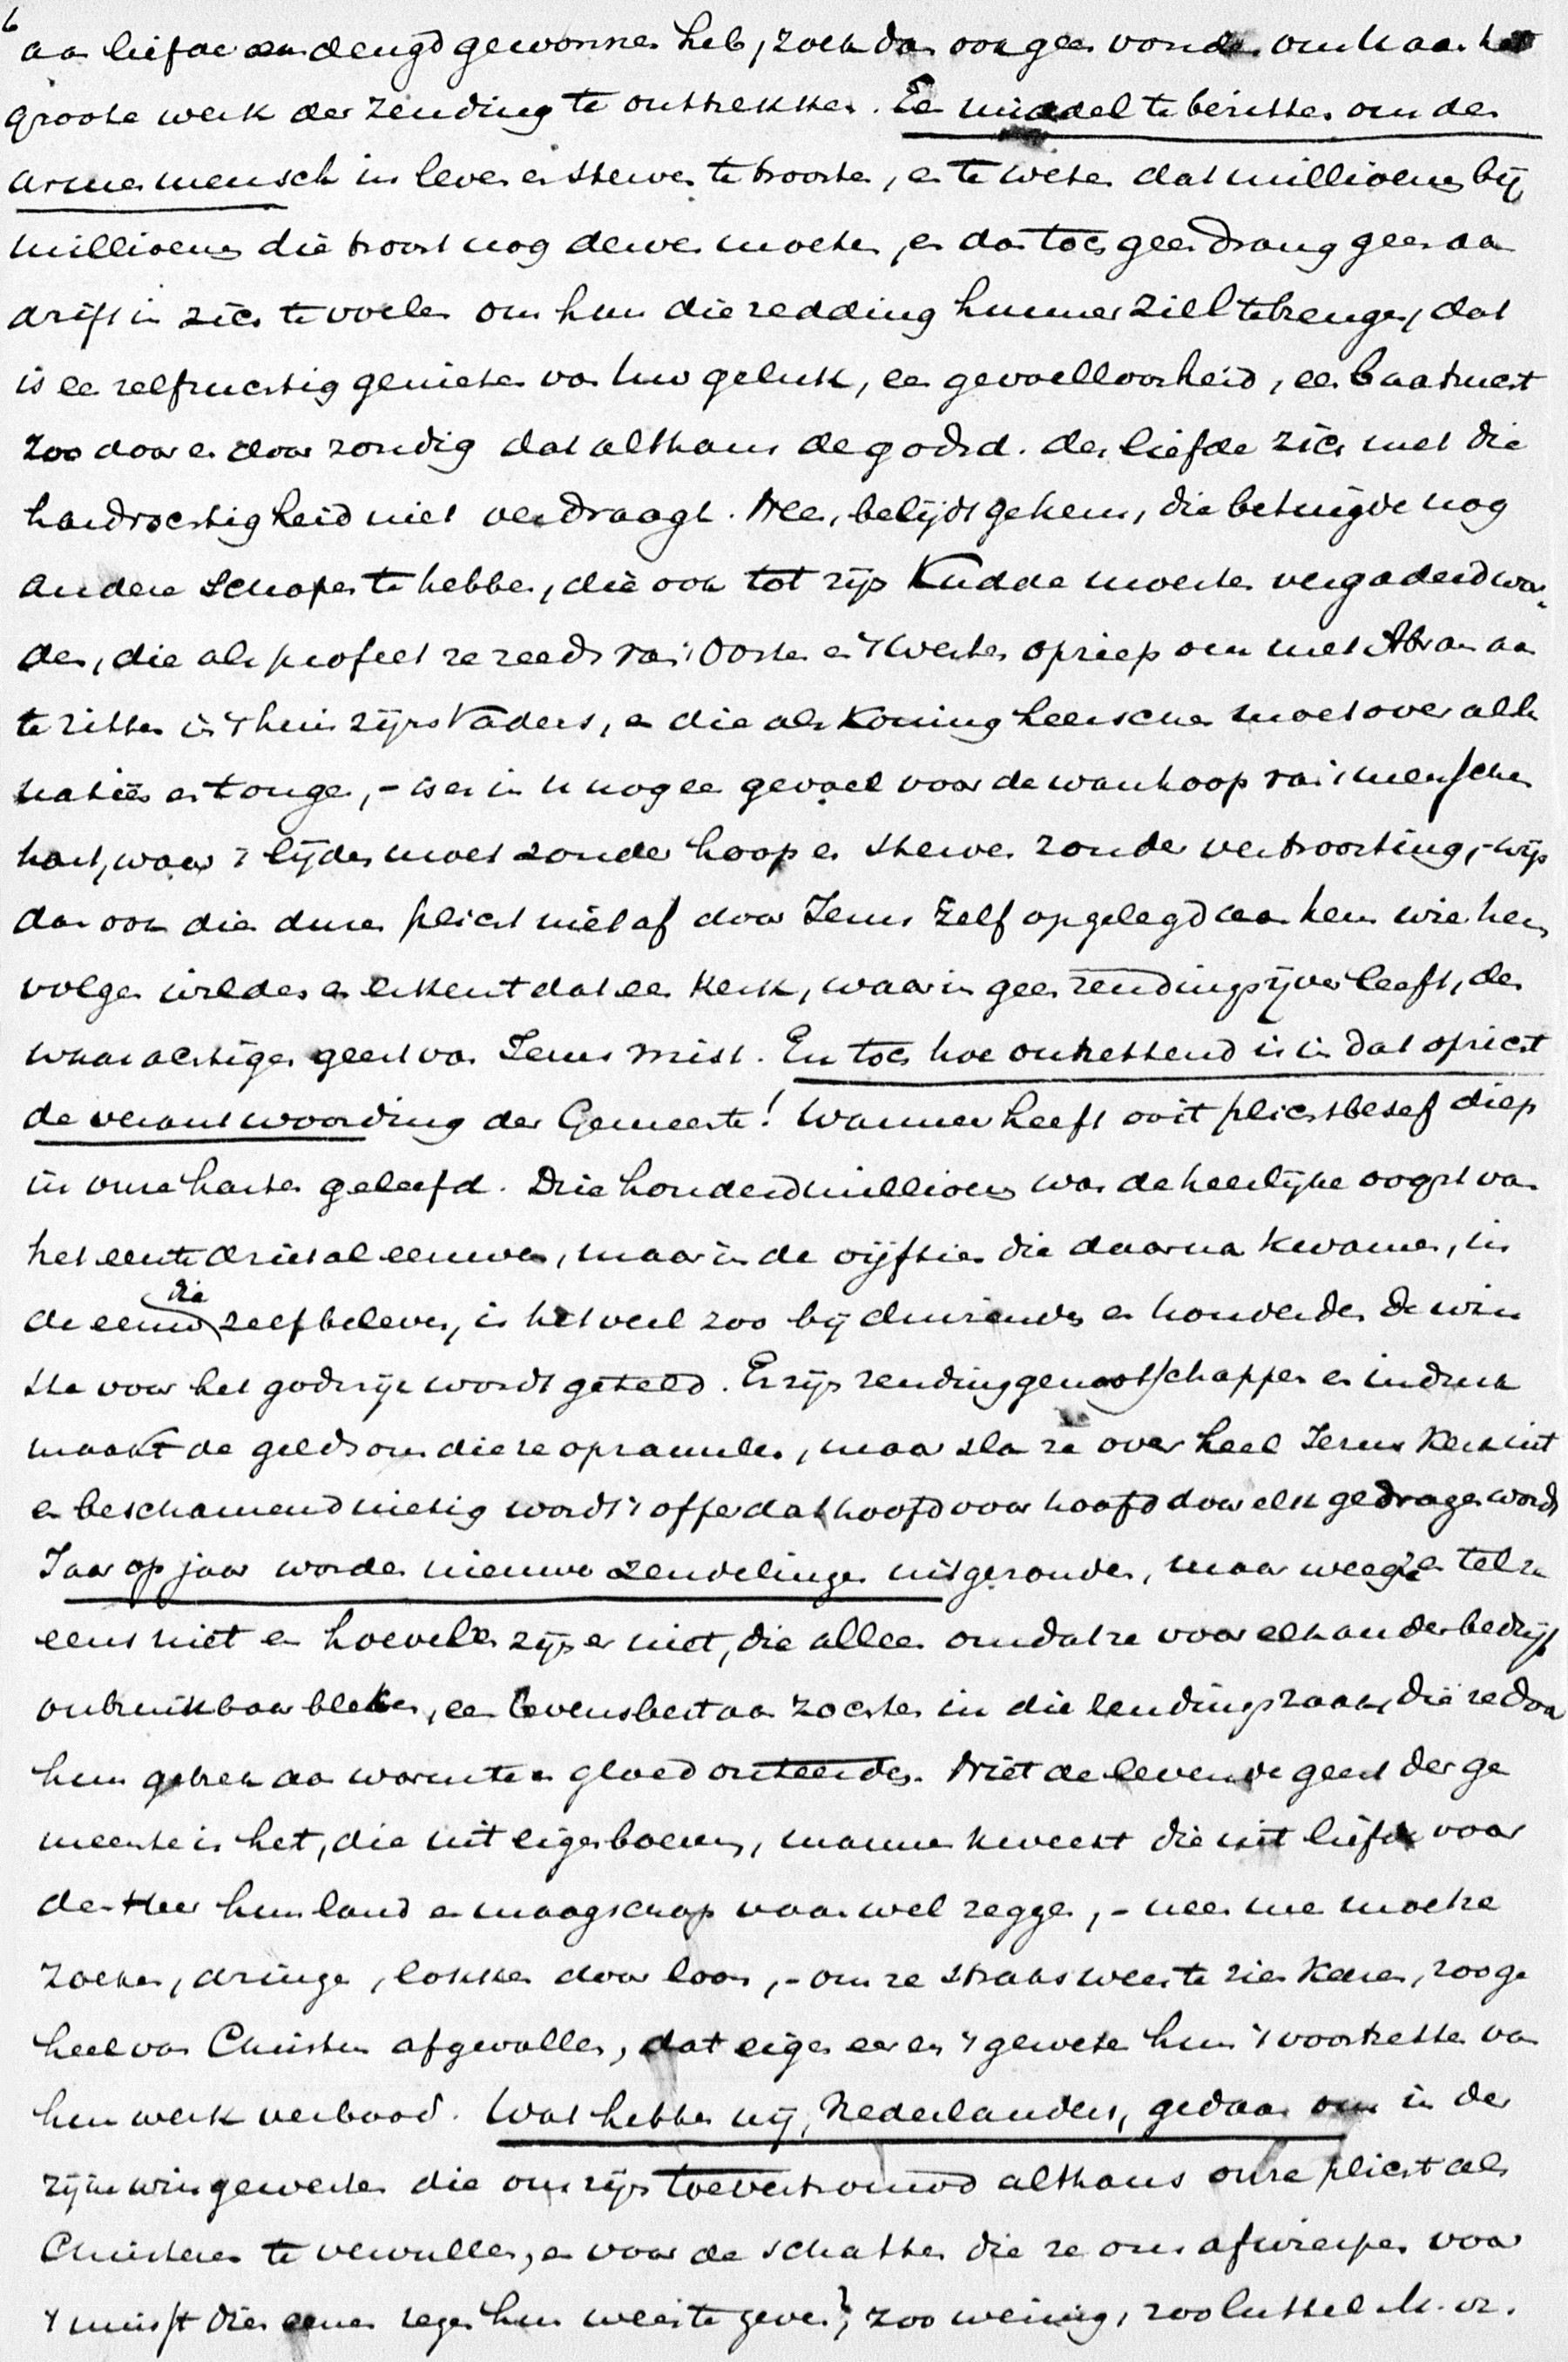 6
aan liefde en deugd gewonnen heb, zoek dan ook geen vonden om U aan het
groote werk der zending te onttrekken. Een middel te bezitten om den
armen mensch in leven en sterven te troosten, en te weten dat millioenen bij
millioenen die troost nog derven moeten, en dan toch geen drang geen aan
drift in zich te voelen om hun die redding hunner ziel te brengen, dat
is een zelfzuchtig genieten van Uw geluk, een gevoelloosheid, een baatzucht
zoo door en door zondig dat althans de godsd. der liefde zich met die
hardvochtigheid niet verdraagt. Nee, belijdt ge hem, die betuigde nog
andere schapen te hebben, die ook tot zijn Kudde moesten vergaderd wor-
den, die als profeet ze reeds van 't Oosten en 't Westen opriep om met Abram aan
te zitten in 't huis zijns Vaders, en die als Koning heerschen moet over alle
natiën en tongen, - is er in U nog een gevoel voor de wanhoop van 't menschen
hart, waar 't lijden moet zonder hoop en sterven zonder vertroosting, - wijs
dan ook die duren plicht niet af door Jezus zelf opgelegd aan hem wie hem
volgen wilden en erkent dat een Kerk, waarin geen zendingsijver leeft, den
waarachtigen geest van Jezus mist. En toch hoe ontzettend is in dat opzicht
de verantwoording der Gemeente! Wanneer heeft ooit plichtsbesef diep
in onze harten geleefd. Drie honderd millioen was de heerlijke oogst van
het eerste drietal eeuwen, maar in de vijftien die daarna kwamen, in
de eeuw die zelf beleven, is het veel zoo bij duizenden en honderden de win
ste voor het godsrijk wordt geteld. Er zijn zendinggenootschappen en indruk
maakt de geldsom die ze opzamelen, maar sla ze over heel Jezus Kerk uit
en beschamend nietig wordt 't offer dat hoofd voor hoofd door elk gedragen wordt
Jaar op jaar worden nieuwe zendelingen uitgezonden, maar weeg ze en tel ze
eens niet en hoevelen zijn er niet, die alleen omdat ze voor elk ander bedrijf
onbruikbaar bleken, een levensbestaan zochten in die zendingszaak, die ze door
hun gebrek aan warmte en gloed onteerden. Niet de levende geest der ge
meente is het, die uit eigen boezem, mannen kweekt die uit liefde voor
den Heer hun land en maagschap vaarwel zeggen, - neen me moet ze
zoeken, dringen, lokken door loon, - om ze straks weer te zien keren, zoo ge
heel van Christus afgevallen, dat eigen eer en 't geweten hun 't voortzetten van
hun werk verbood. Wat hebben wij, Nederlanders, gedaan om in de
rijke wingewesten die ons zijn toevertrouwd althans onze plicht als
Christenen te vervullen, en voor de schatten die ze ons afwierpen voor
't minst dien eenen zegen hun weer te geven? zoo weinig, zoo luttel M. vr.